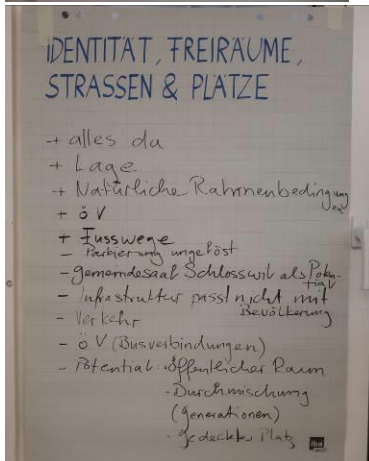 IDENTITÄT, FREIRÄUME,
STRASSEN & PLÄTZE
+ alles da
+ Lage
+ Natürliche Rahmenbedingungen
+ öV
+ Fusswege
- Parkierung ungelöst
- gemeindesaal Schlosswil als Poten-
tial
- Infrastruktur passt nicht mit
Bevölkerung
- Verkehr
- öV (Busverbindungen)
- Potential · öffentlicher Raum
· Durchmischung
(generationen)
· gedeckter Platz